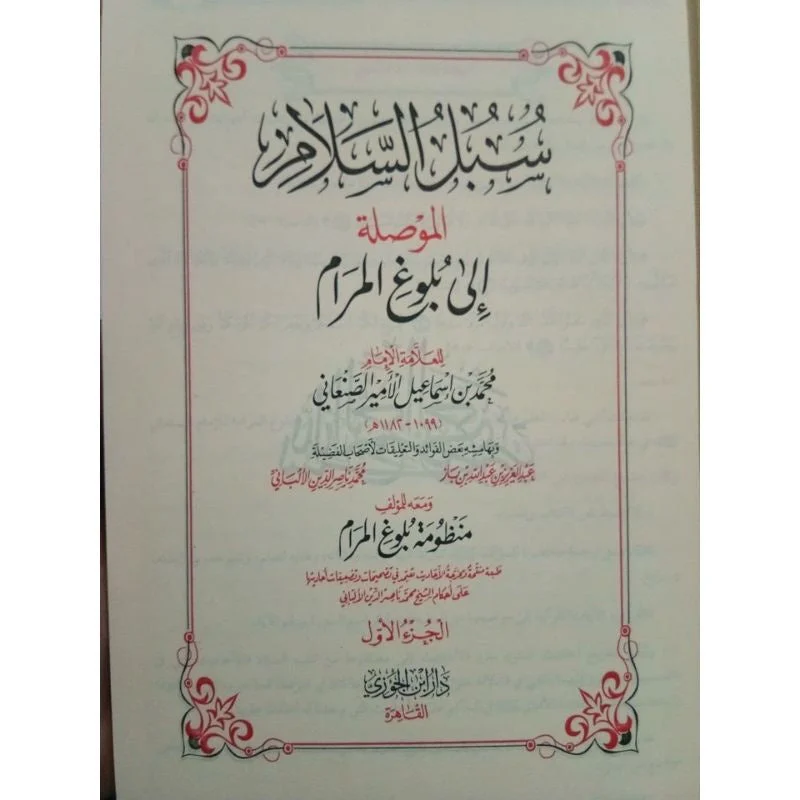 سُبُلُ السَّلَامِ
الموْصلة
إِلىٰ بُلُوغِ المرَام
للعلَّامة الإمَام
محمَّد بْن إسْماعيل الأمير الصَّنعَاني
(١٠٩٩ - ١١٨٢هـ)
وبهَامِشِه بَعض الفَوائد والتعليقات لأصْحاب الفَضيلَة
عبد العزيز بن عبد الله بن باز محمَّد ناصر الدين الألبَاني
ومعَه للمؤلف
مَنظومَة بُلوغ المرَام
طبعة منقحة ومخرجة الأحاديث تعتمد في تصحيحات وتضعيفات أحاديثها
على أحكام الشيخ محمَّد ناصر الدين الألباني
الجُزءُ الأوّل
دَار ابن الجَوزي
القَاهِرَة